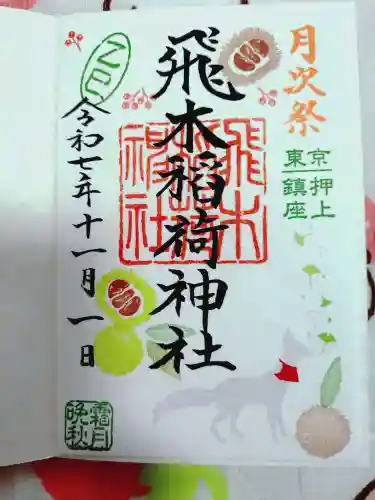 月次祭
東京 押上
鎮座
飛木稲荷神社
飛木
稲荷
神社
令和七年十一月一日
霜月
晩秋